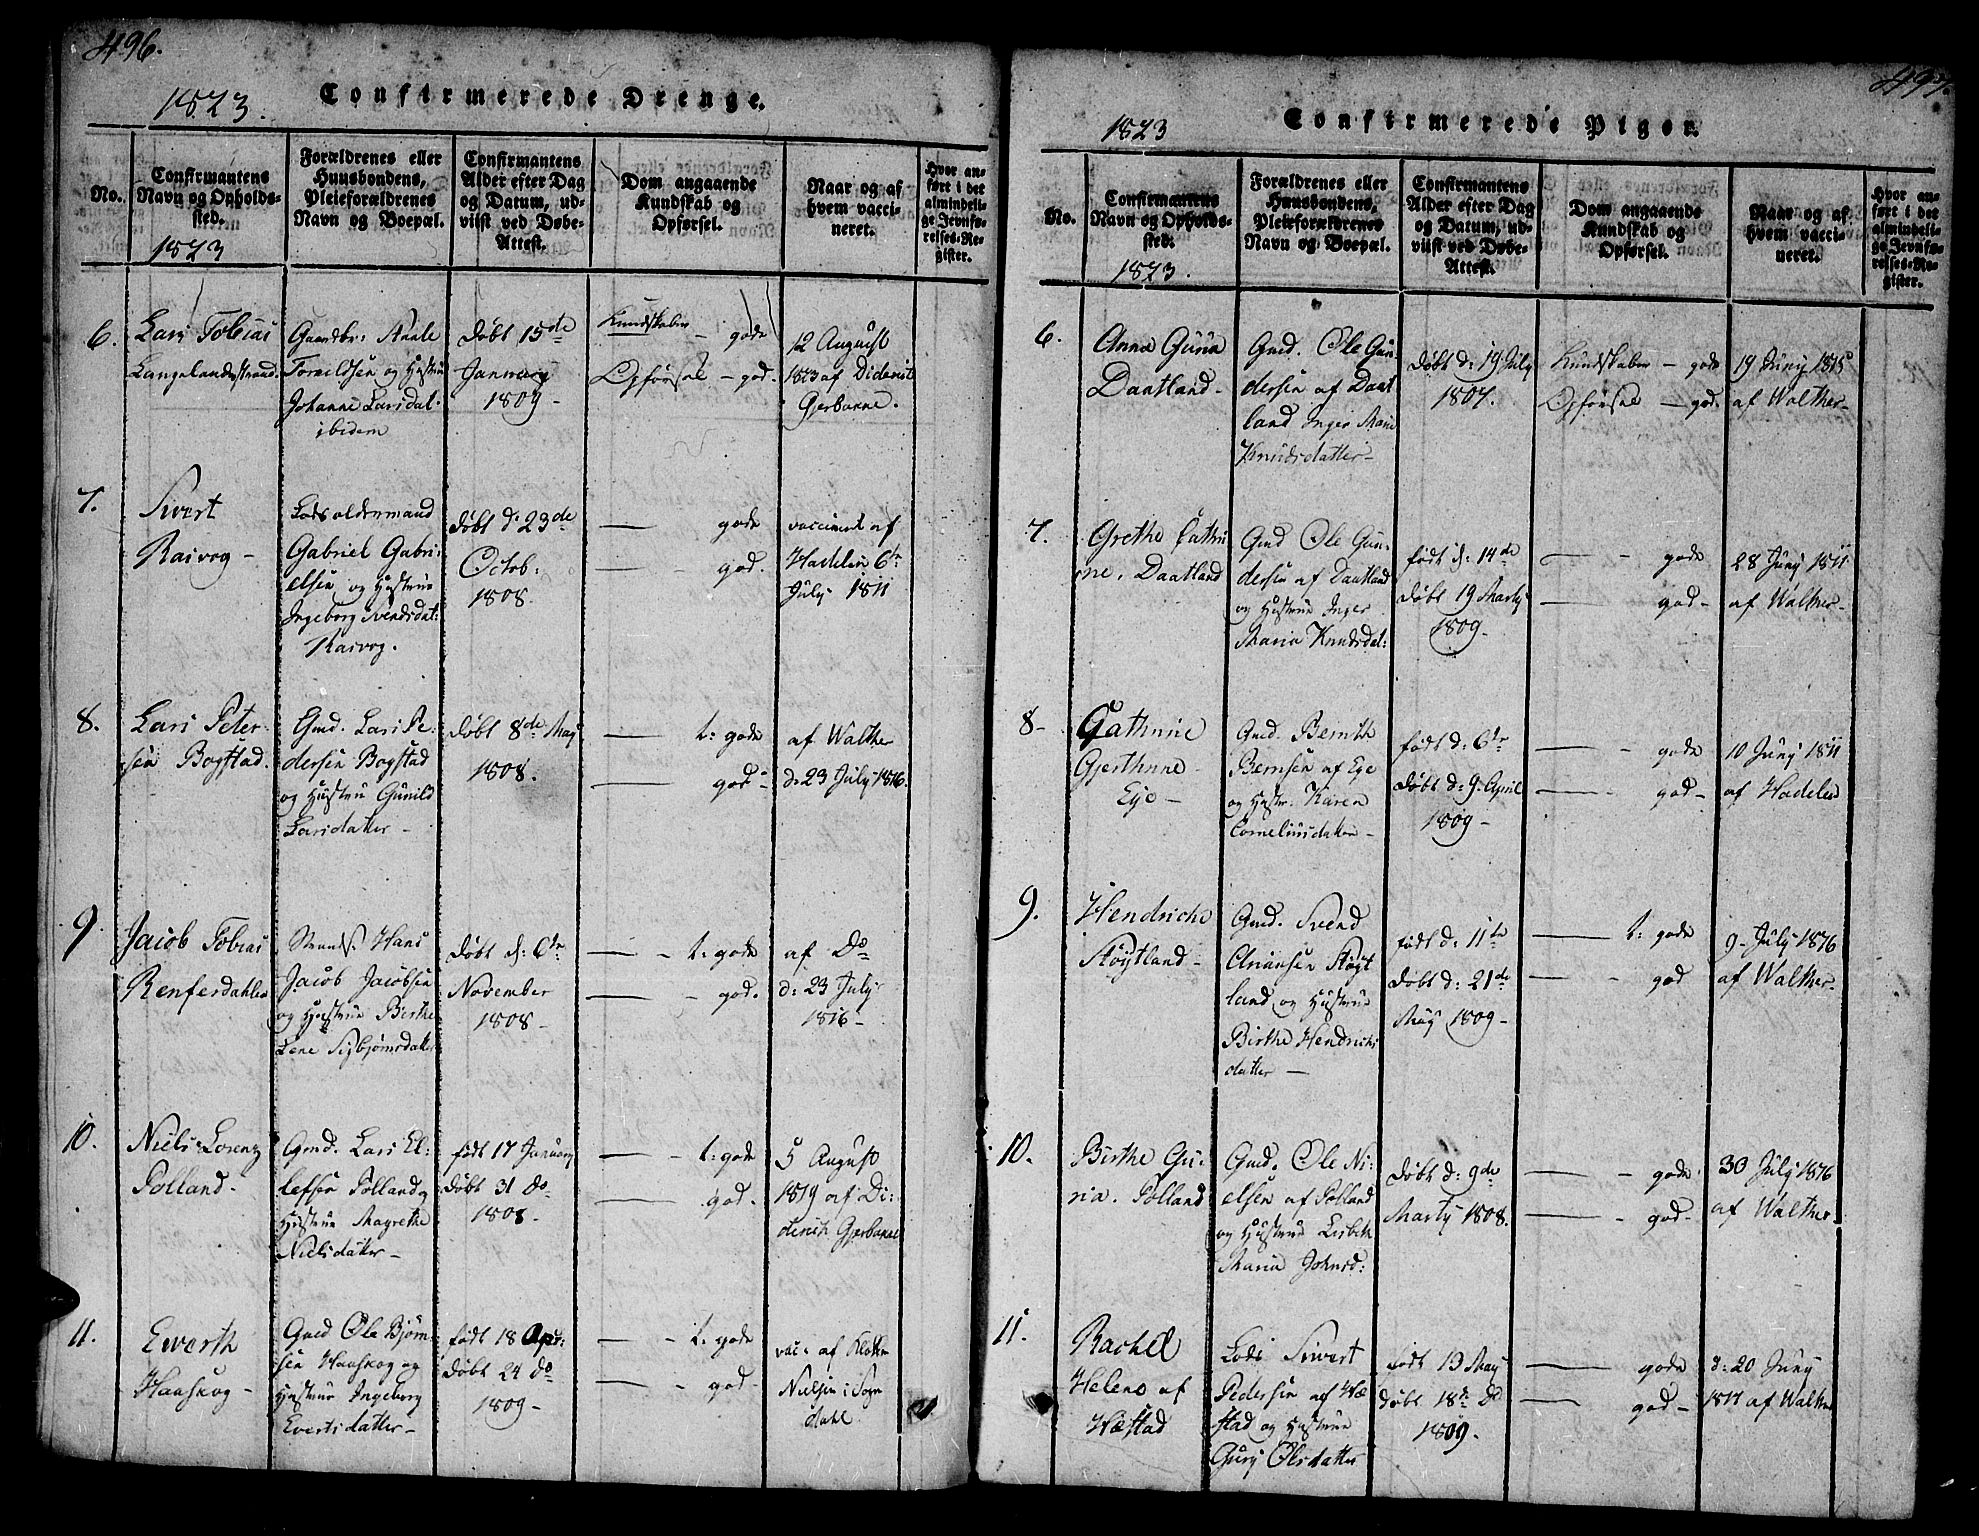 496.
1823. Confirmerede Drenge.
No.
Confirmantens
Navn og Opholds-
sted.
1823
Forældrenes eller
Huusbondens,
Pleieforældrenes
Navn og Boepæl.
Confirmantens
Alder efter Dag
og Datum, ud-
viist ved Døbe-
Attest.
Dom angaaende
Kundskab og
Opførsel.
Naar og af
hvem vacci-
neret.
Hvor an-
ført i det
almindeli-
ge Jevnfø-
relses-Re-
gister.
6.
Lars Tobias
Langelandsstrand.
Johanne Larsdat.
ibidem
Døbt 15de
January
1809
Kundskaber - gode
Opførsel - god.
12 August
1823 af Diderich
Gjerbanne.
7.
Sivert
Rasvog -
Lodsoldermand
Gabriel Gabri-
elsen og Hustrue
Ingeborg Svendsdat:
Rasvog.
Døbt d: 23de
Octob:
1808.
— gode
— - god.
vaccineret af
Hadeln 6te
July 1811
8.
Lars Peter
sen Bogstad.
Gmd. Lars Pe-
dersen Bogstad
og Hustru Gunild
Larsdatter -
Døbt 8de May
1808.
— t: gode
— god -
af Walther
d: 23 July 1816.
9.
Jacob Tobias
Renferdahlen
Strands. Hans
Jacob Jacobsen
og Hustrue Birthe
Lene Sigbjørnsdatter
Døbt d: 6te
November
1808 -
— - t: gode
— - god.
af Do
d: 23 July
1816 -
10.
Niels Lorenz
Tolland.
Gmd. Lars El-
lefsen Tolland og
Hustrue Magrethe
Nielsdatter -
født 17 January
Døbt 31 do
1808 -
— - t: gode
— god -
5 August
1819 af Di-
derich Gjerbanne
11.
Ewerth
Haaskog -
Gmd Ole Bjørn-
sen Haaskog og
Hustrue Ingeborg
Evertsdatter -
født 18 Apr:
Døbt 24 do
1809 -
— - t: gode
— - god -
vac: af
Nielsen i Sogn
dahl.
497.
1823 Confirmerede Piger.
No.
Confirmantens
Navn og Opholds-
sted.
1823.
Forældrenes eller
Huusbondens,
Pleieforældrenes
Navn og Boepæl.
Confirmantens
Alder efter Dag
og Datum, ud-
viist ved Døbe-
Attest.
Dom angaaende
Kundskab og
Opførsel.
Naar og af
hvem vacci-
neret.
Hvor an-
ført i det
almindeli-
ge Jevnfø-
relses-Re-
gister.
6.
Anna Guria
Daatland -
Gmd. Ole Gun-
dersen af Daat
land Inger Marie
Knudsdatter -
Døbt d: 19 July
1807.
Kundskaber - gode
Opførsel - god.
19 Juny 1815
af Walther -
7.
Grethe Cathri
ne. Daatland
Gmd Ole Gun-
dersen af Daatland
og Hustrue Inger
Maria Knudsdat:
født d: 14de
Døbt 19 Marty
1809 -
— - gode
— god -
28 Juny 1811
af Walther -
8 -
Cathrine
Gjerthrine
Eye -
Gmd. Bernth
Bernsen af Eye
og Hustr. Karen
Corneliusdatter -
født d: 6te
Døbt d: 9. April
1809 -
— - gode
— - god -
10 Juny 1811
af Hadeln
9.
Hendriche
Støytland -
Gmd. Svend
Ariansen Støyt
land og Hustrue
Birthe Hendrichs
datter —
født d: 11te
Døbt d: 21de
May 1809 -
— t: gode
— god
9 - July 1816
af Walther -
10.
Birthe Gu-
ria. Tolland
Gmd. Ole Ni-
elsen af Tolland
og Hustrue Lisbeth
Maria Johnsd:
Døbt d: 9de
Marty 1808.
— - gode
— - god -
30 July 1816
af Walther
11.
Rachel
Helene af
Hæstad
Lods Sivert
Pedersen af Hæ
stad og Hustrue
Gury Olsdatter
født 13 May
Døbt 18de do
1809.
— gode
— god -
d: 20 Juny
1811 af Walther